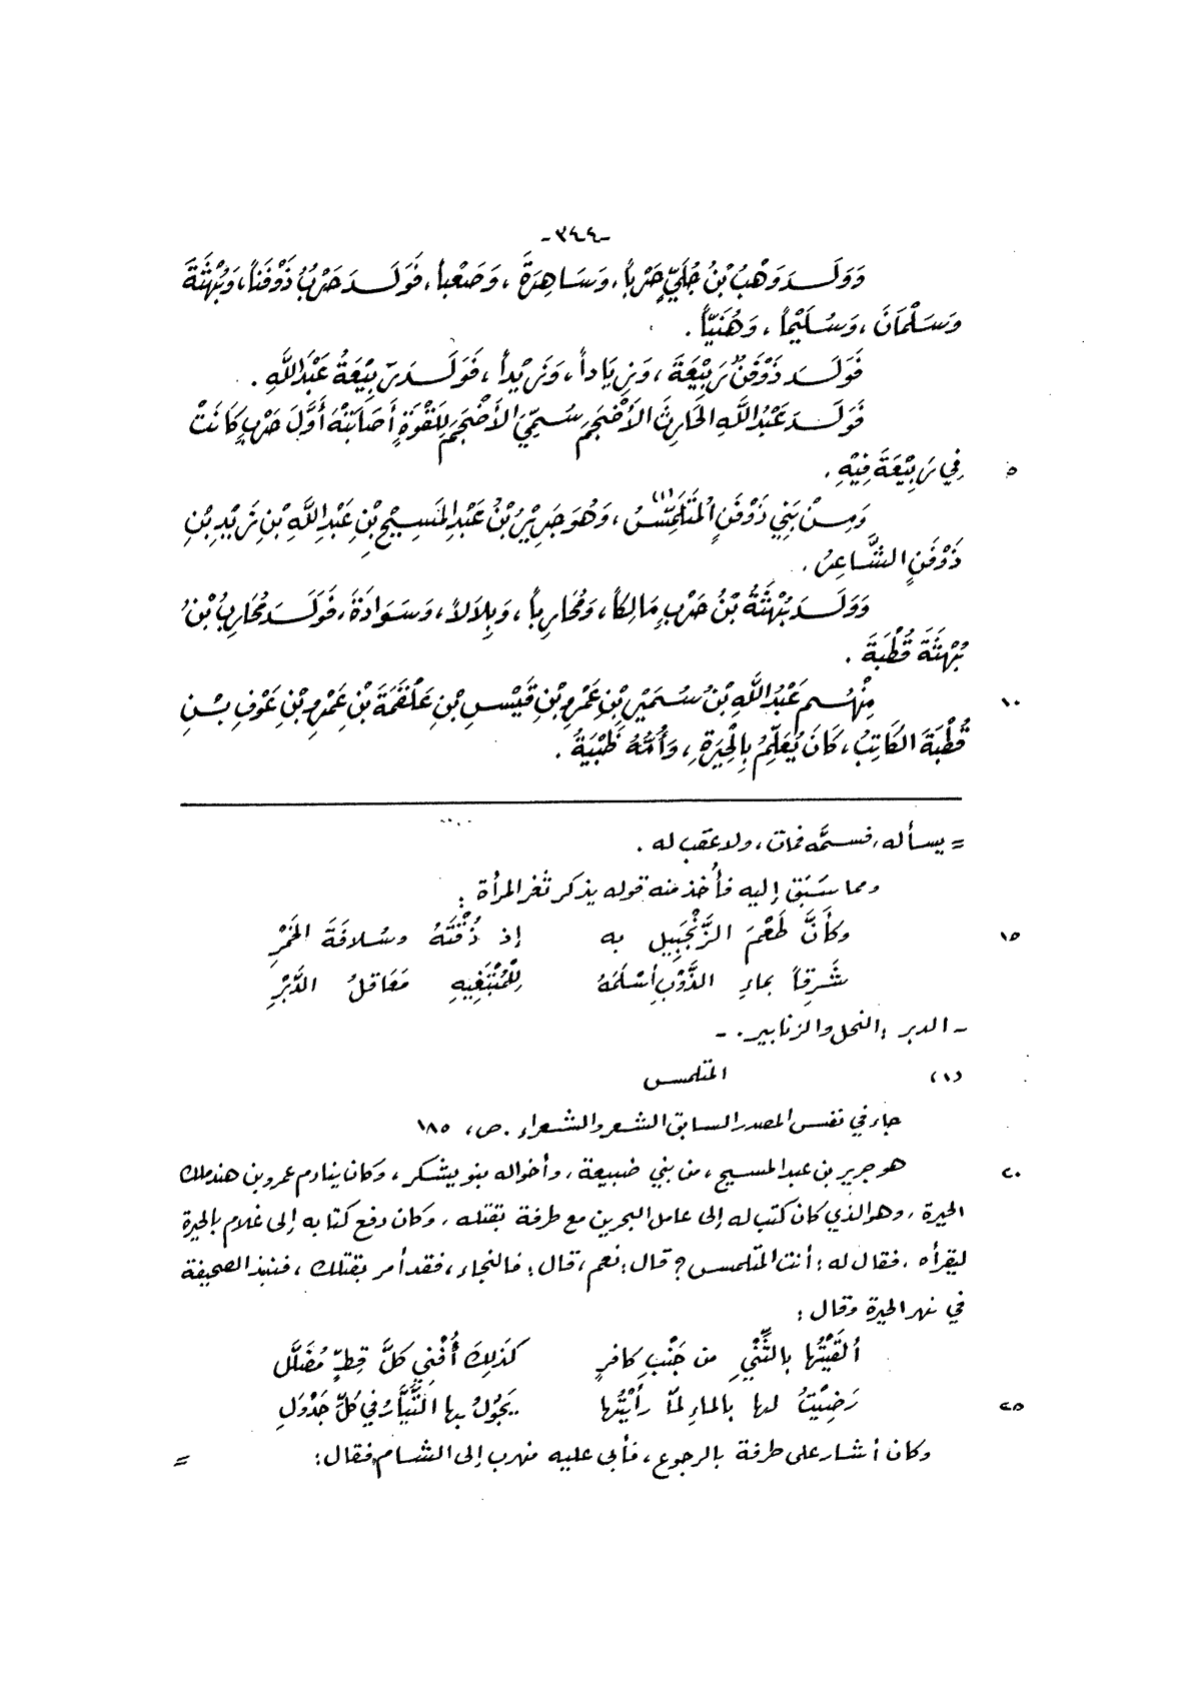 -٣٤٤-
وَوَلَـدَ وَهْبُ بْنُ جُلَيٍّ حَرْباً، وَسَاهِرَةَ، وَصَعْباً، فَوَلَـدَ حَرْبٌ ذَوْفَناً، وَبُهْثَةَ
وَسَلْمَانَ، وَسُلَيْماً، وَهُنَيّاً.
فَوَلَـدَ ذَوْفَنٌ رَبِيْعَةَ، وَزِيَاداً، وَزَيْداً، فَوَلَـدَ رَبِيْعَةُ عَبْدَ اللَّهِ.
فَوَلَـدَ عَبْدُ اللَّهِ الحَارِثَ الأَضْجَمَ سُمِّيَ الأَضْجَمَ لِلَقْوَةٍ أَصَابَتْهُ أَوَّلَ حَرْبٍ كَانَتْ
٥ فِي رَبِيْعَةَ فِيْهِ.
وَمِـنْ بَنِي ذَوْفَنٍ المُتَلَمِّسُ(١)، وَهُوَ جَرِيْرُ بْنُ عَبْدِ المَسِيْحِ بْنِ عَبْدِ اللَّهِ بْنِ زَيْدِ بْنِ
ذَوْفَنٍ الشَّاعِرُ.
وَوَلَـدَ بُهْثَةُ بْنُ حَرْبٍ مَالِكاً، وَمُحَارِباً، وَبِلَالاً، وَسَوَادَةَ، فَوَلَـدَ مُحَارِبُ بْنُ
بُهْثَةَ قُطْبَةَ.
١٠ مِنْهُـم عَبْدُ اللَّهِ بْنُ سُمَيْرِ بْنِ عَمْرِو بْنِ قَيْسِ بْنِ عَلْقَمَةَ بْنِ عَمْرِو بْنِ عَوْفِ بْـنِ
قُطْبَةَ الكَاتِبُ، كَانَ يُعَلِّمُ بِالحِيْرَةِ، وَأُمُّهُ ظَبْيَةُ.
= يسأله، فسمَّه فمات، ولا عقب له.
ومما سَبَق إليه فأُخذ منه قوله يذكر ثغر المرأة:
١٥ وكأنَّ طَعْمَ الزَّنْجَبِيلِ به إذ ذُقْتَهُ وسُلافَةَ الخَمْرِ
شَرِقاً بماءِ الذَّوْبِ أسْلَمَهُ لِلْمُبْتَغِيهِ مَعَاقلُ الدَّبْرِ
- الدبر: النحل والزنابير. -
(١) المتلمس
جاء في نفس المصدر السابق الشعر والشعراء. ص، ١٨٥
٢٠ هو جرير بن عبد المسيح، من بني ضبيعة، وأخواله بنو يشكر، وكان ينادم عمرو بن هند ملك
الحيرة، وهو الذي كان كتب له إلى عامل البحرين مع طرفة بقتله، وكان دفع كتابه إلى غلام بالحيرة
ليقرأه، فقال له: أنت المتلمس؟ قال: نعم، قال: فالنجاء، فقد أمر بقتلك، فنبذ الصحيفة
في نهر الحيرة وقال:
ألقَيْتُها بالثِّنْيِ من جَنْبِ كافرٍ كذلِكَ أُفْنِي كلَّ قِطٍّ مُضَلَّلِ
٢٥ رَضِيْتُ لها بالماءِ لمّا رأيْتُها يَجُوْلُ بها التَّيَّارُ في كلِّ جَدْوَلِ
وكان أشار على طرفة بالرجوع، فأبى عليه فهرب إلى الشام فقال: =